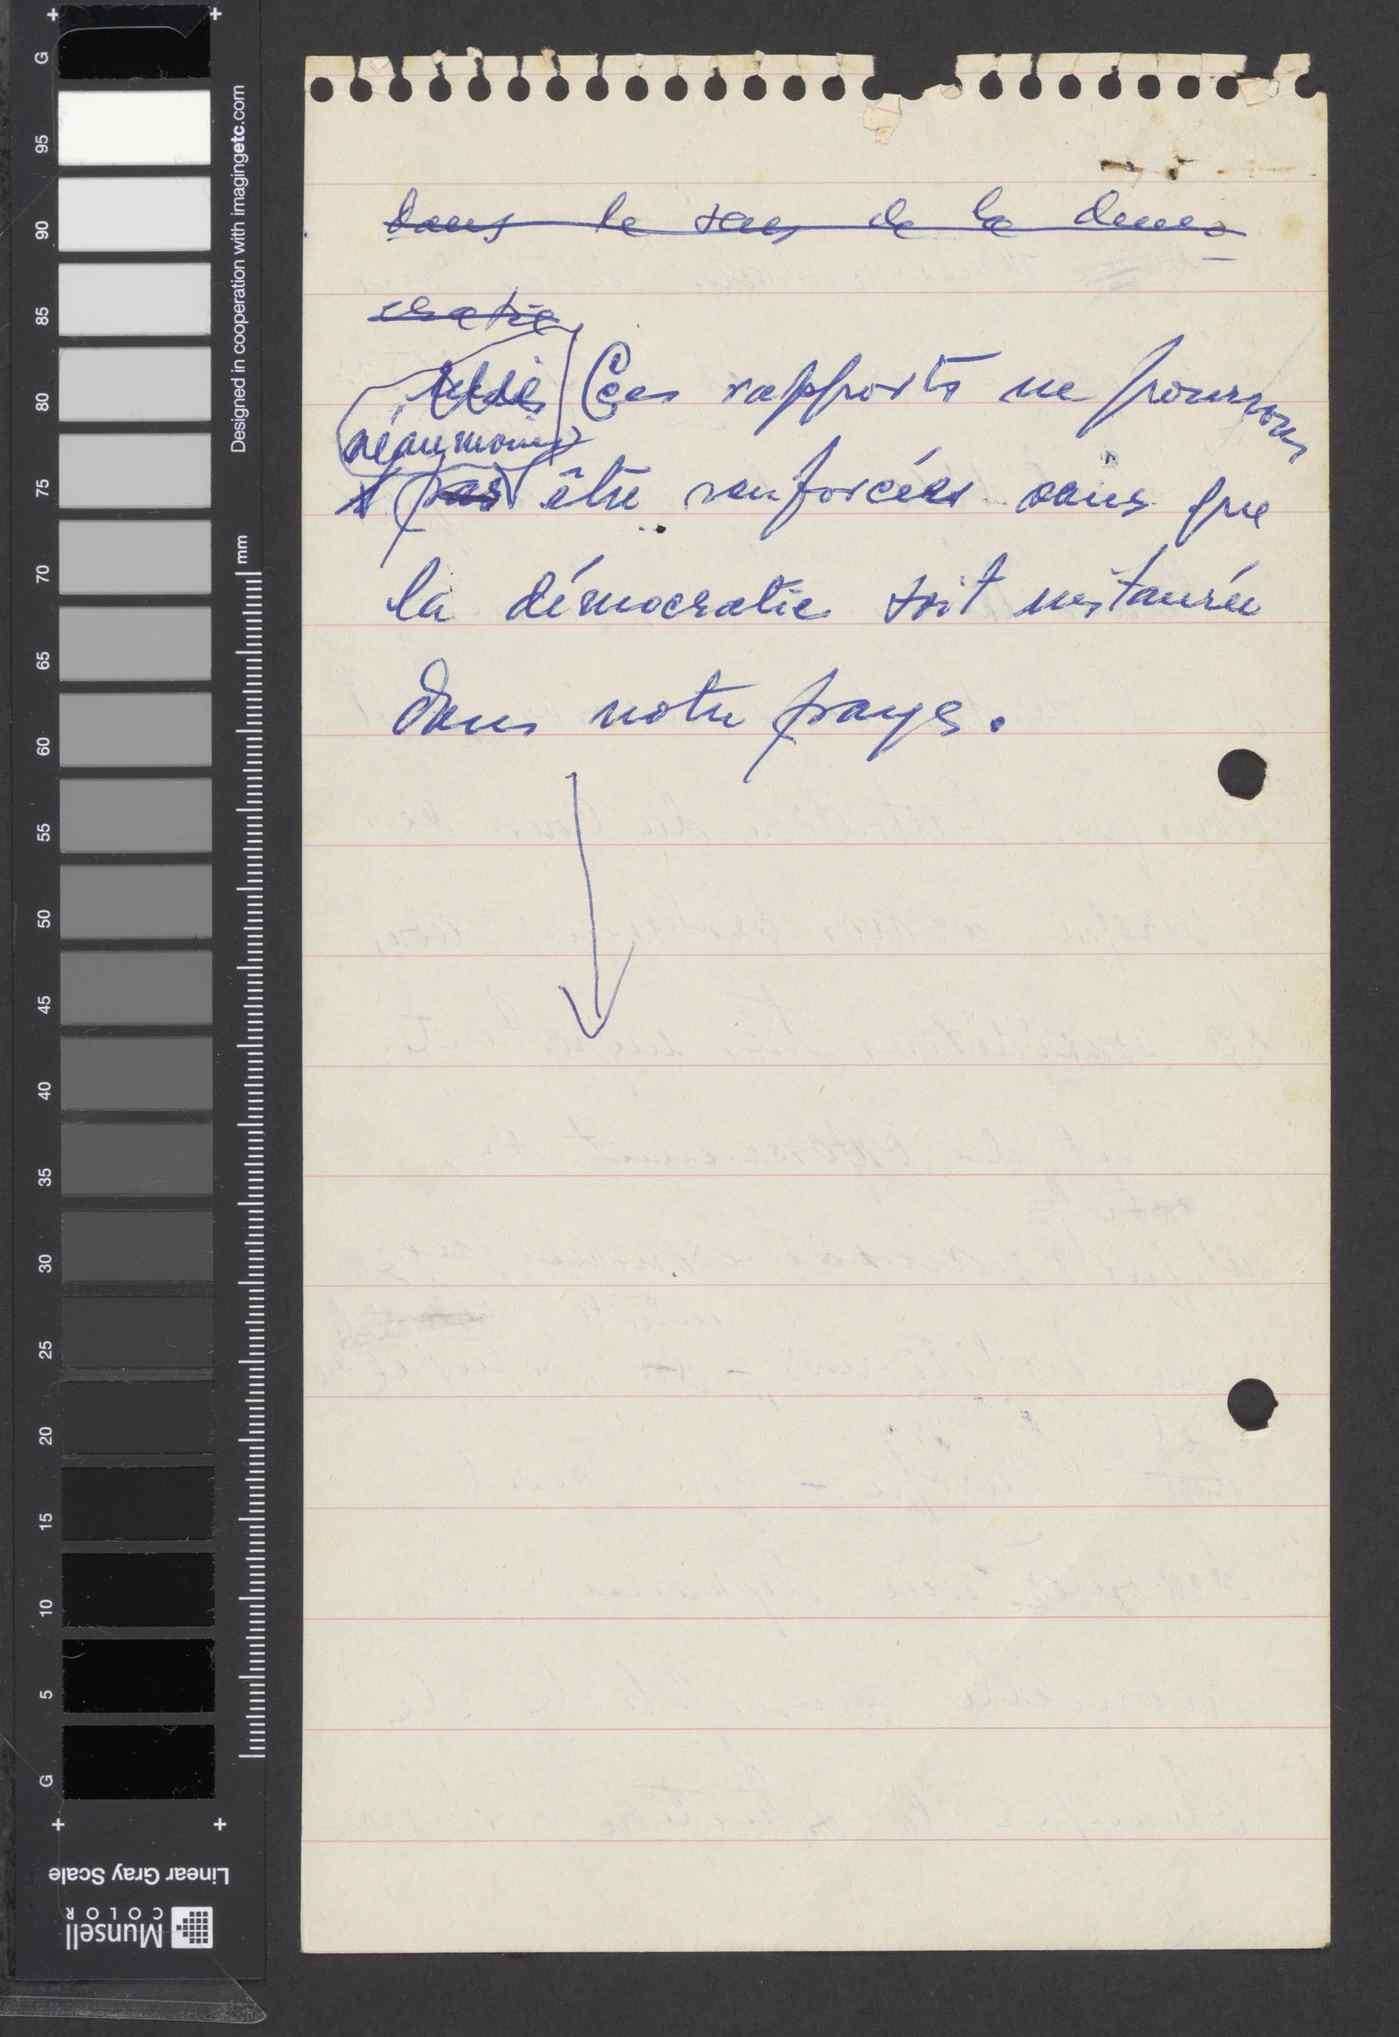 dans le sens de la démo-
cratie
Ces rapports ne pourrons
néanmoins
pas être renforcées sans que
la démocratie soit instaurée
dans notre pays.
G
95
90
85
80
75
70
65
60
55
50
45
40
35
30
25
20
15
10
5
G
Designed in cooperation with imagingetc.com
mm
Linear Gray Scale
Munsell
COLOR